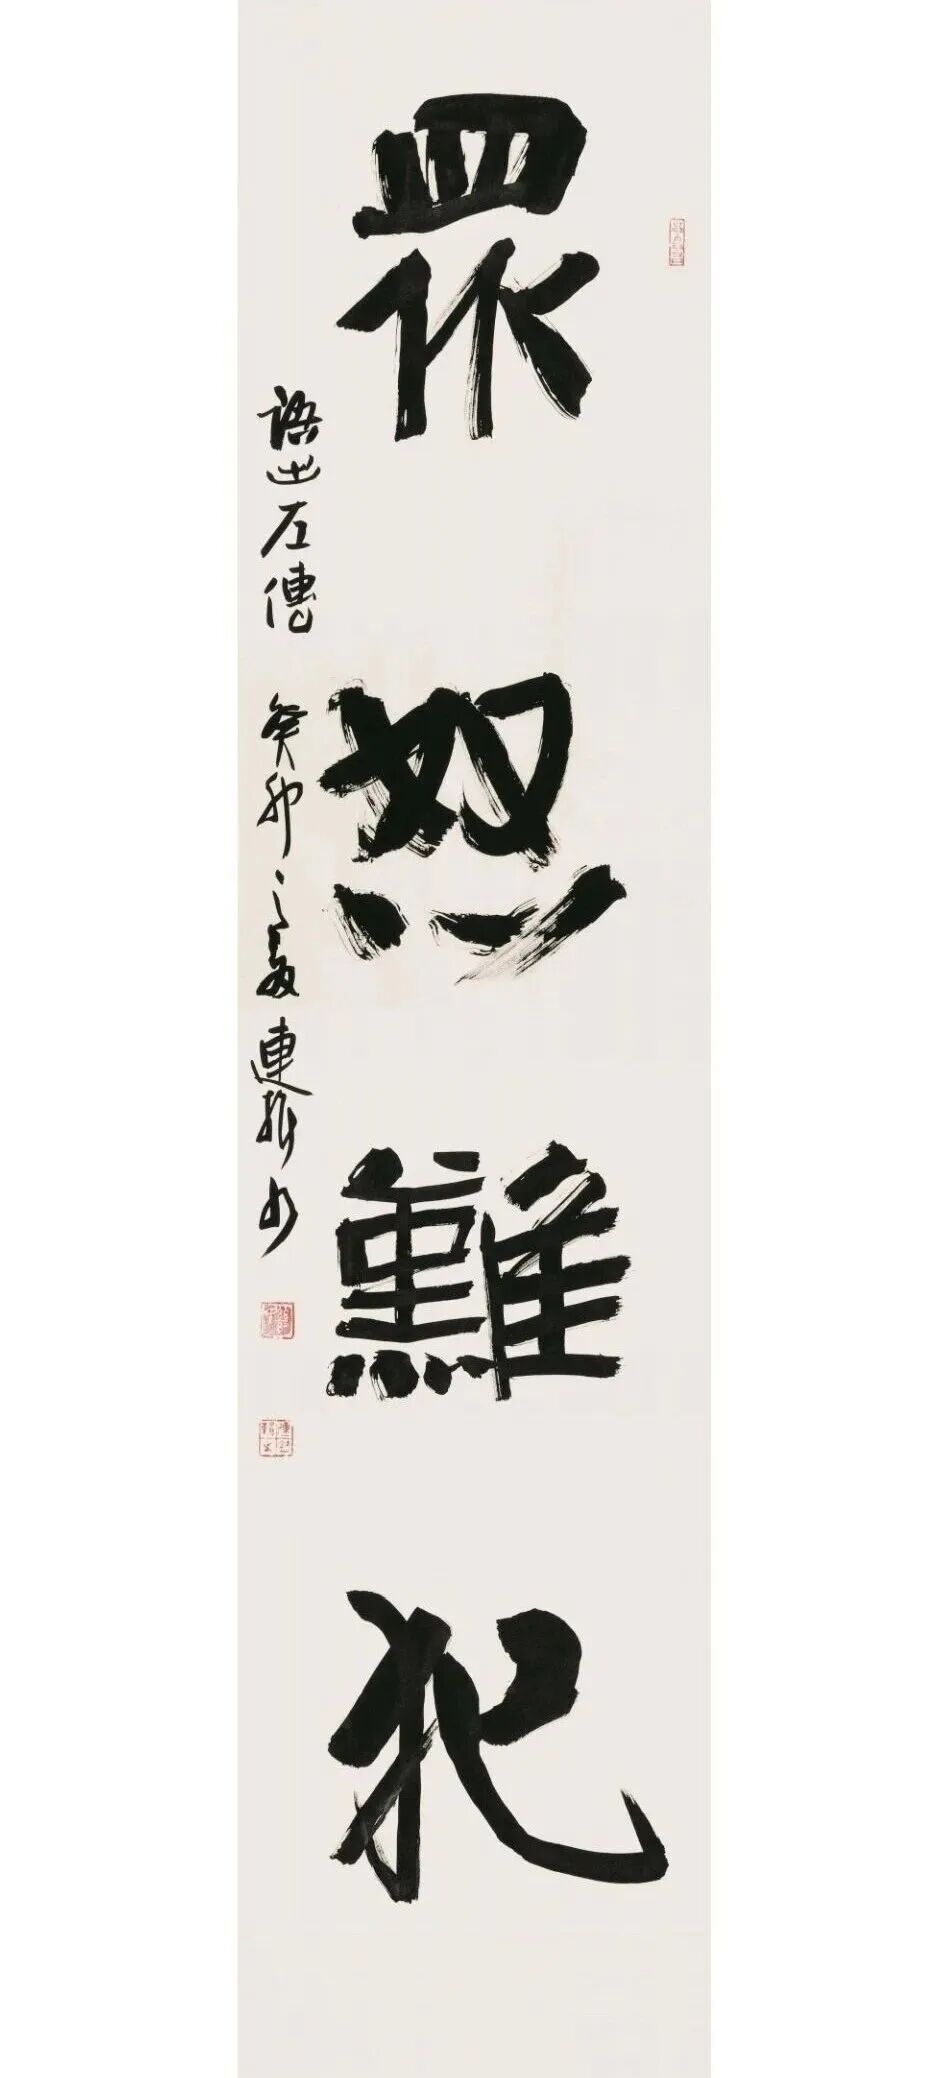 眾怒難犯
語出左傳 癸卯之夏連振書